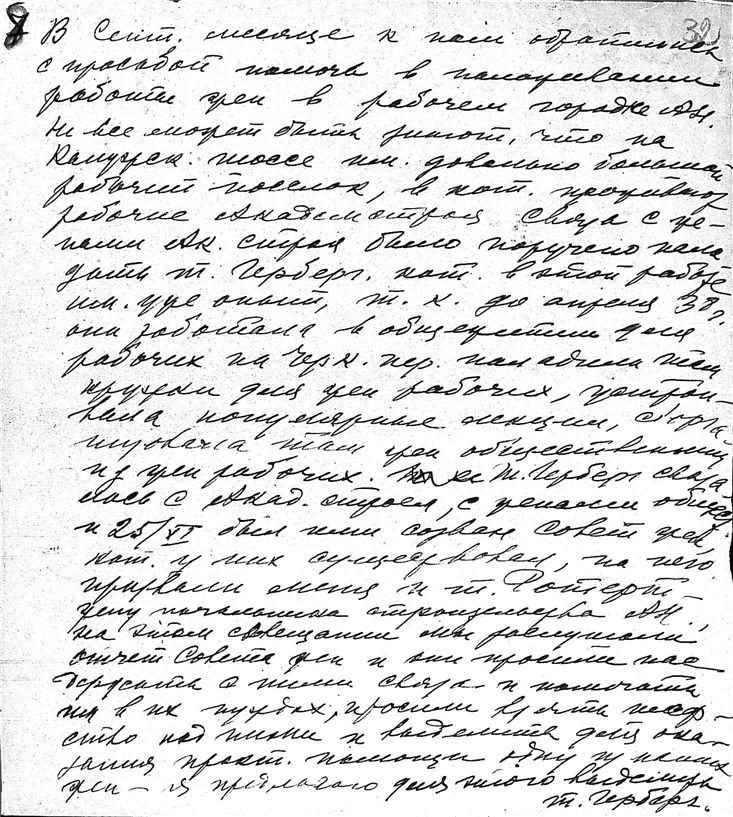 В Сент. месяце к нам обратились
с просьбой помочь в налаживании
работы жен в рабочем городке АН.
Не все может быть знают, что на
Калужск. шоссе им. довольно большой
рабочий поселок, в кот. проживают
рабочие Академстроя связь с же-
нами Ак. строя было поручено нала
дить т. Герберг. кот. в этой работе
им. уже опыт, т. к. до апреля 38 г.
она работала в общежитии для
рабочих на Черк. пер. наладила там
кружки для жен рабочих, устраи-
вала популярные лекции, сорга-
низовала там жен общественниц
из жен рабочих. т. Герберг связа
лась с Акад. строем, с женами общест.
и 25/XI был ими созван Совет жен,
кот. у них существовал, на него
призвали меня и т. Ротерт -
жену начальника строительства АН.,
на этом совещании мы заслушали
отчет Совета жен и они просили нас
держать с ними связь и помогать
им в их нуждах, просили взять шеф-
ство над ними и выделить для ока-
зания практ. помощи одну из наших
жен - я предлагаю для этого выделить
т. Герберг.